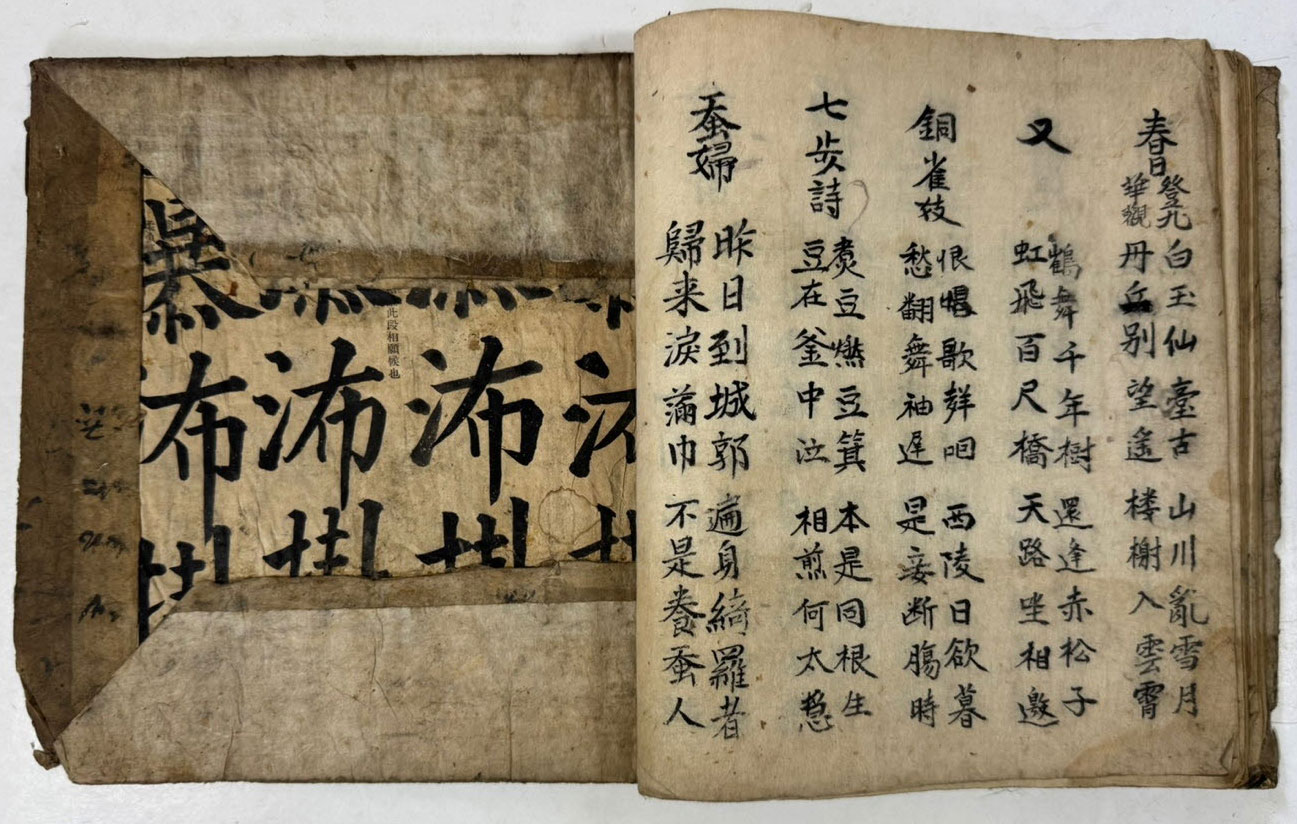 春日登九華觀
白玉仙臺古 山川亂雪月
丹丘别望遙 楼榭入雲霄
又
鶴舞千年樹 還逢赤松子
虹飛百尺橋 天路坐相邀
銅雀妓
恨唱歌聲咽 西陵日欲暮
愁翻舞袖遲 是妾断腸時
七步詩
煮豆燃豆箕 本是同根生
豆在釜中泣 相煎何太急
蚕婦
昨日到城郭 遍身綺羅者
歸来淚滿巾 不是養蚕人
沛
沛 掛
此段相顧候也
沛 掛
沛 掛